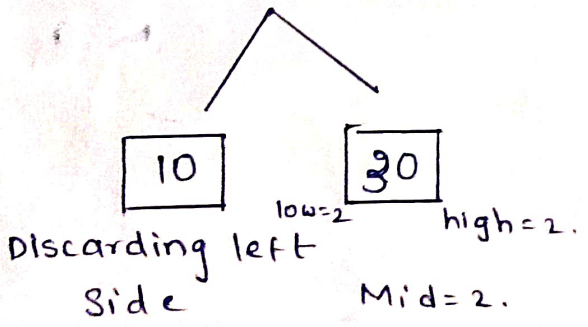 10 30
low=2 high=2.
Discarding left
Side
Mid=2.